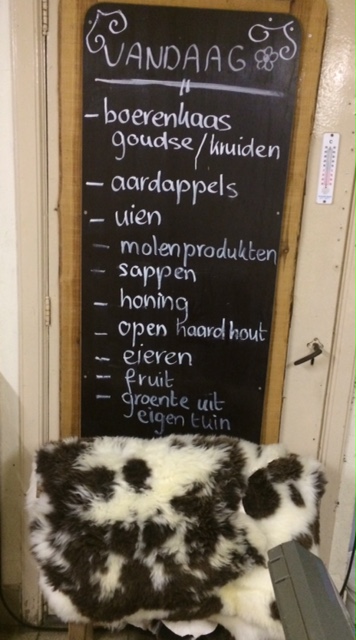 VANDAAG
- boerenkaas
goudse/kruiden
- aardappels
- uien
- molenprodukten
- sappen
- honing
- open haard hout
- eieren
- fruit
- groente uit
eigen tuin